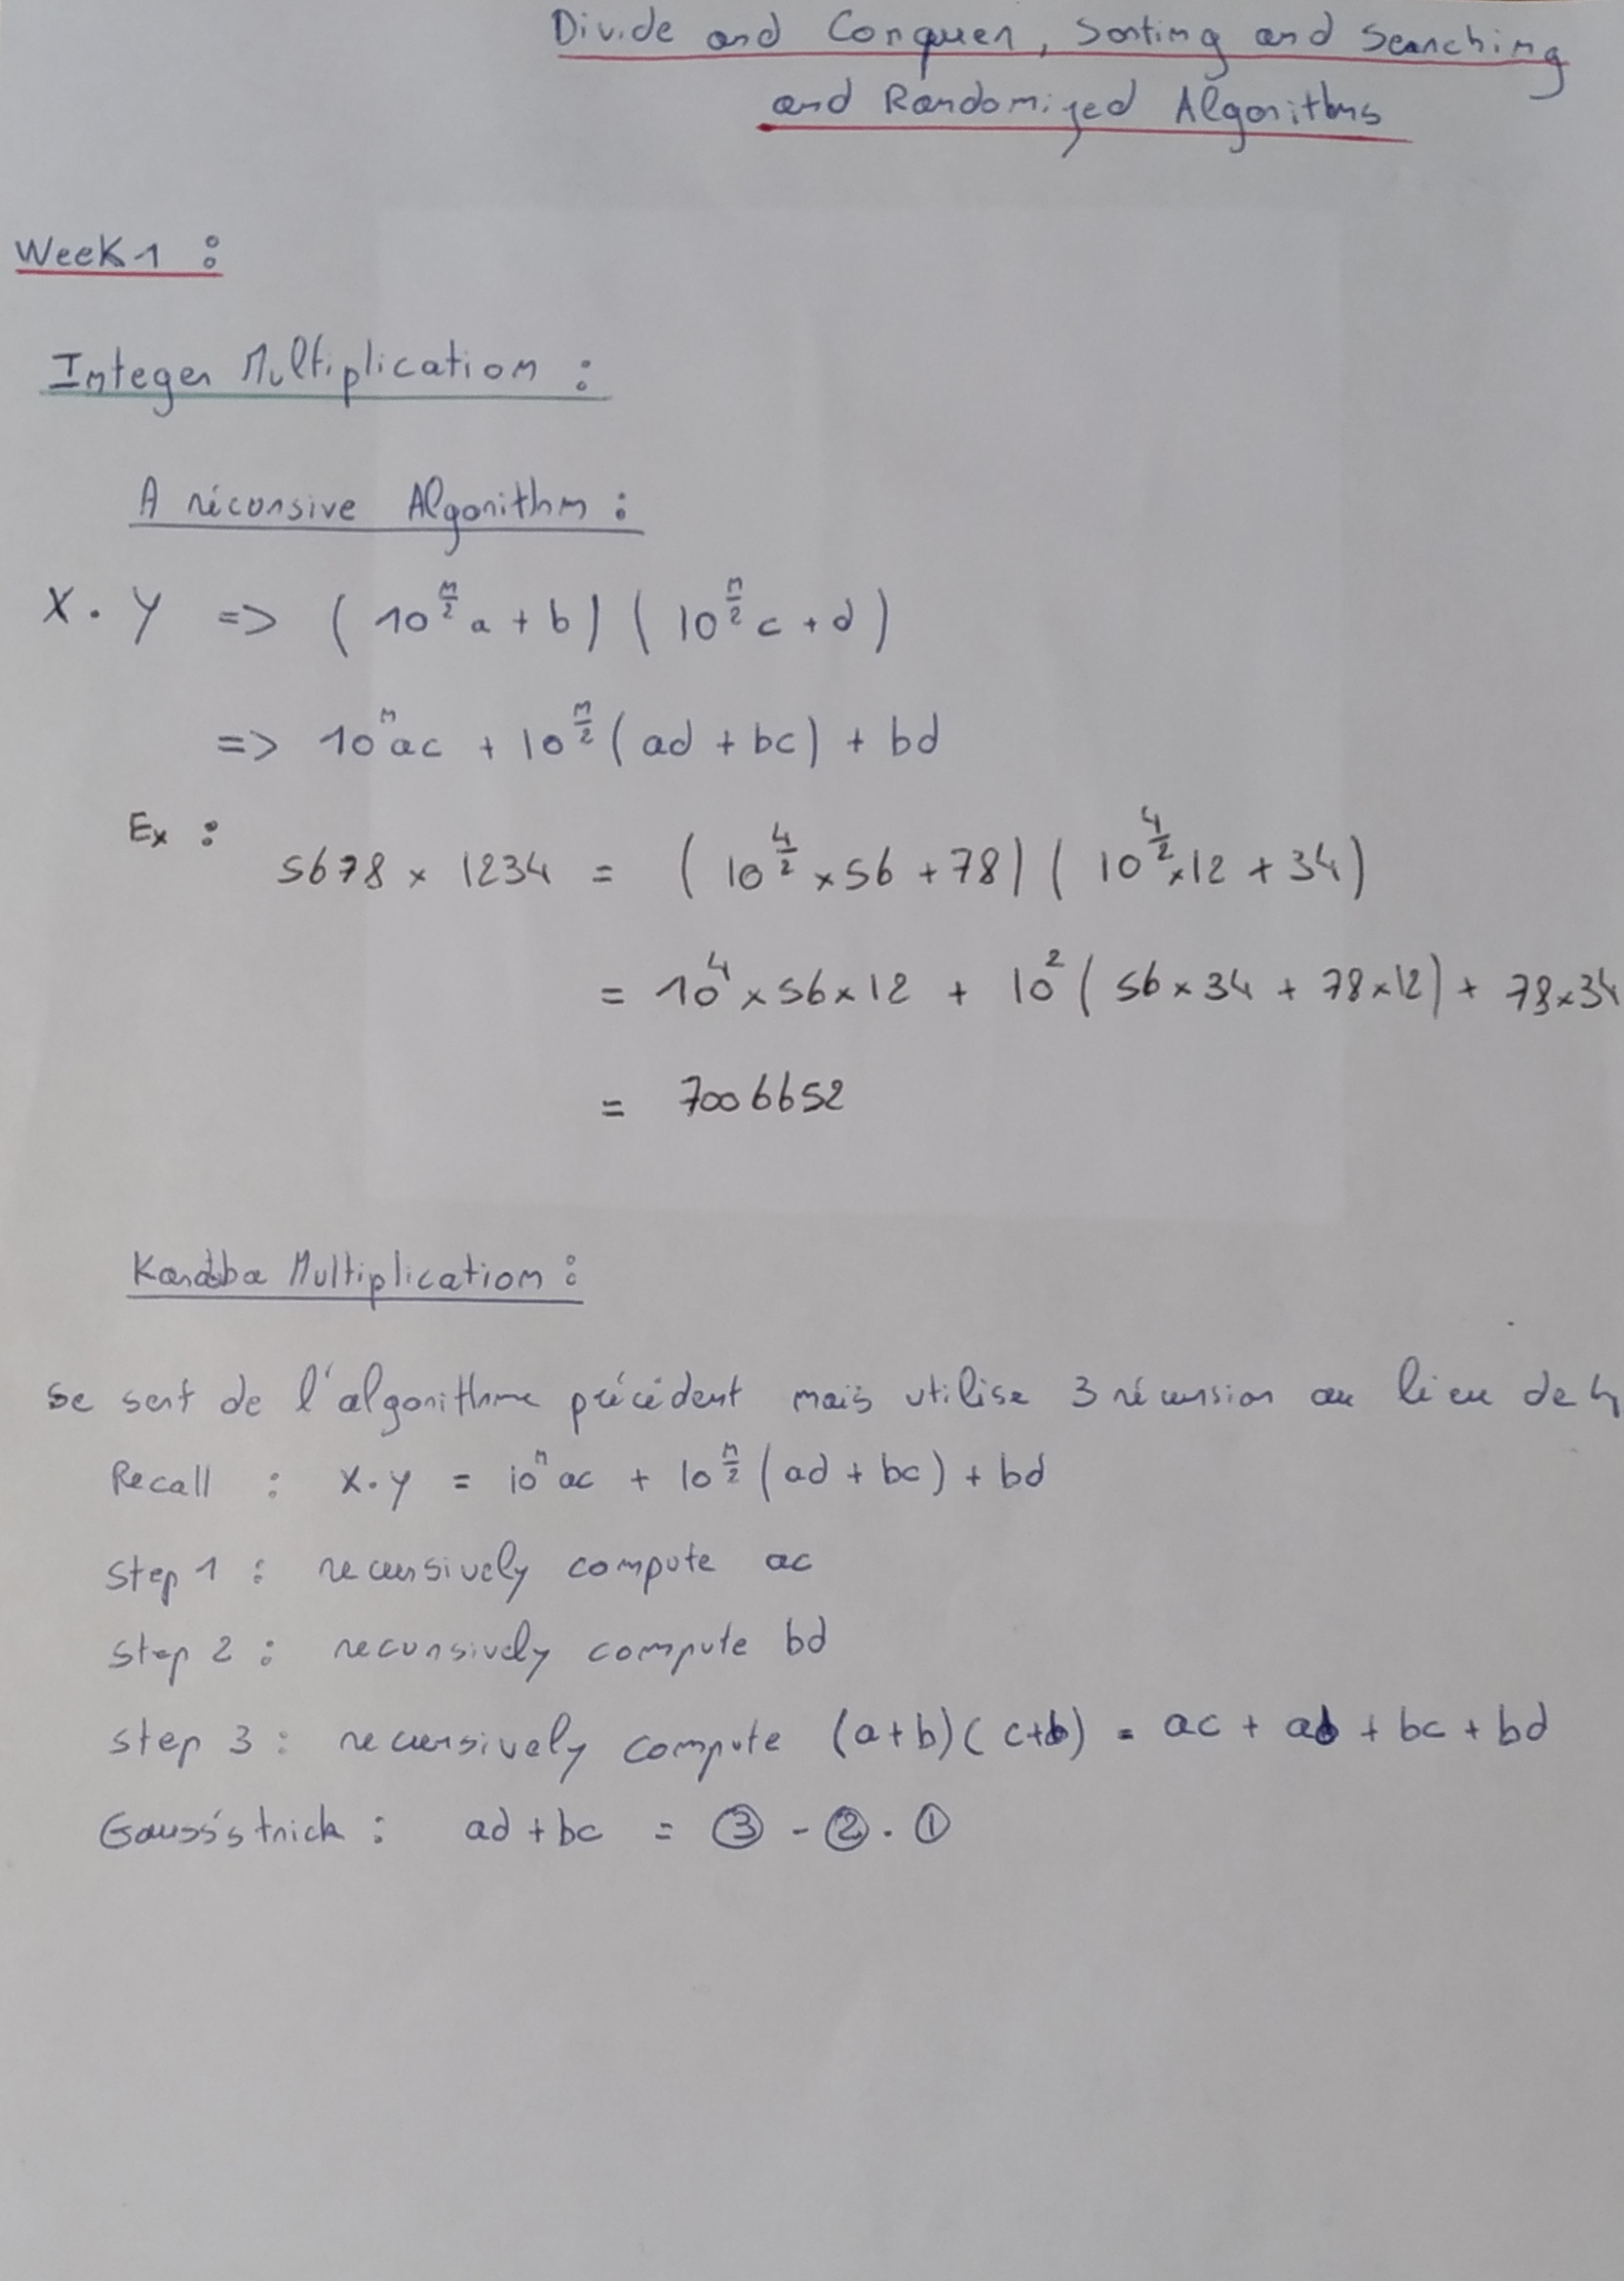 Divide and Conquer, Sorting and Searching
and Randomized Algorithms
Week 1 :
Integer Multiplication :
A récursive Algorithm :
X . Y => (10^(n/2) a + b) (10^(n/2) c + d)
=> 10^n ac + 10^(n/2) (ad + bc) + bd
Ex : 5678 × 1234 = (10^(4/2) × 56 + 78) (10^(4/2) × 12 + 34)
= 10^4 × 56 × 12 + 10^2 (56 × 34 + 78 × 12) + 78 × 34
= 7006652
Multiplication :
Se sert de l'algorithme précédent mais utilise 3 récursion au lieu de 4
Recall : X . Y = 10^n ac + 10^(n/2) (ad + bc) + bd
Step 1 : recursively compute ac
Step 2 : recursively compute bd
Step 3 : recursively compute (a+b)(c+d) = ac + ad + bc + bd
Gauss's trick : ad + bc = ③ - ② - ①